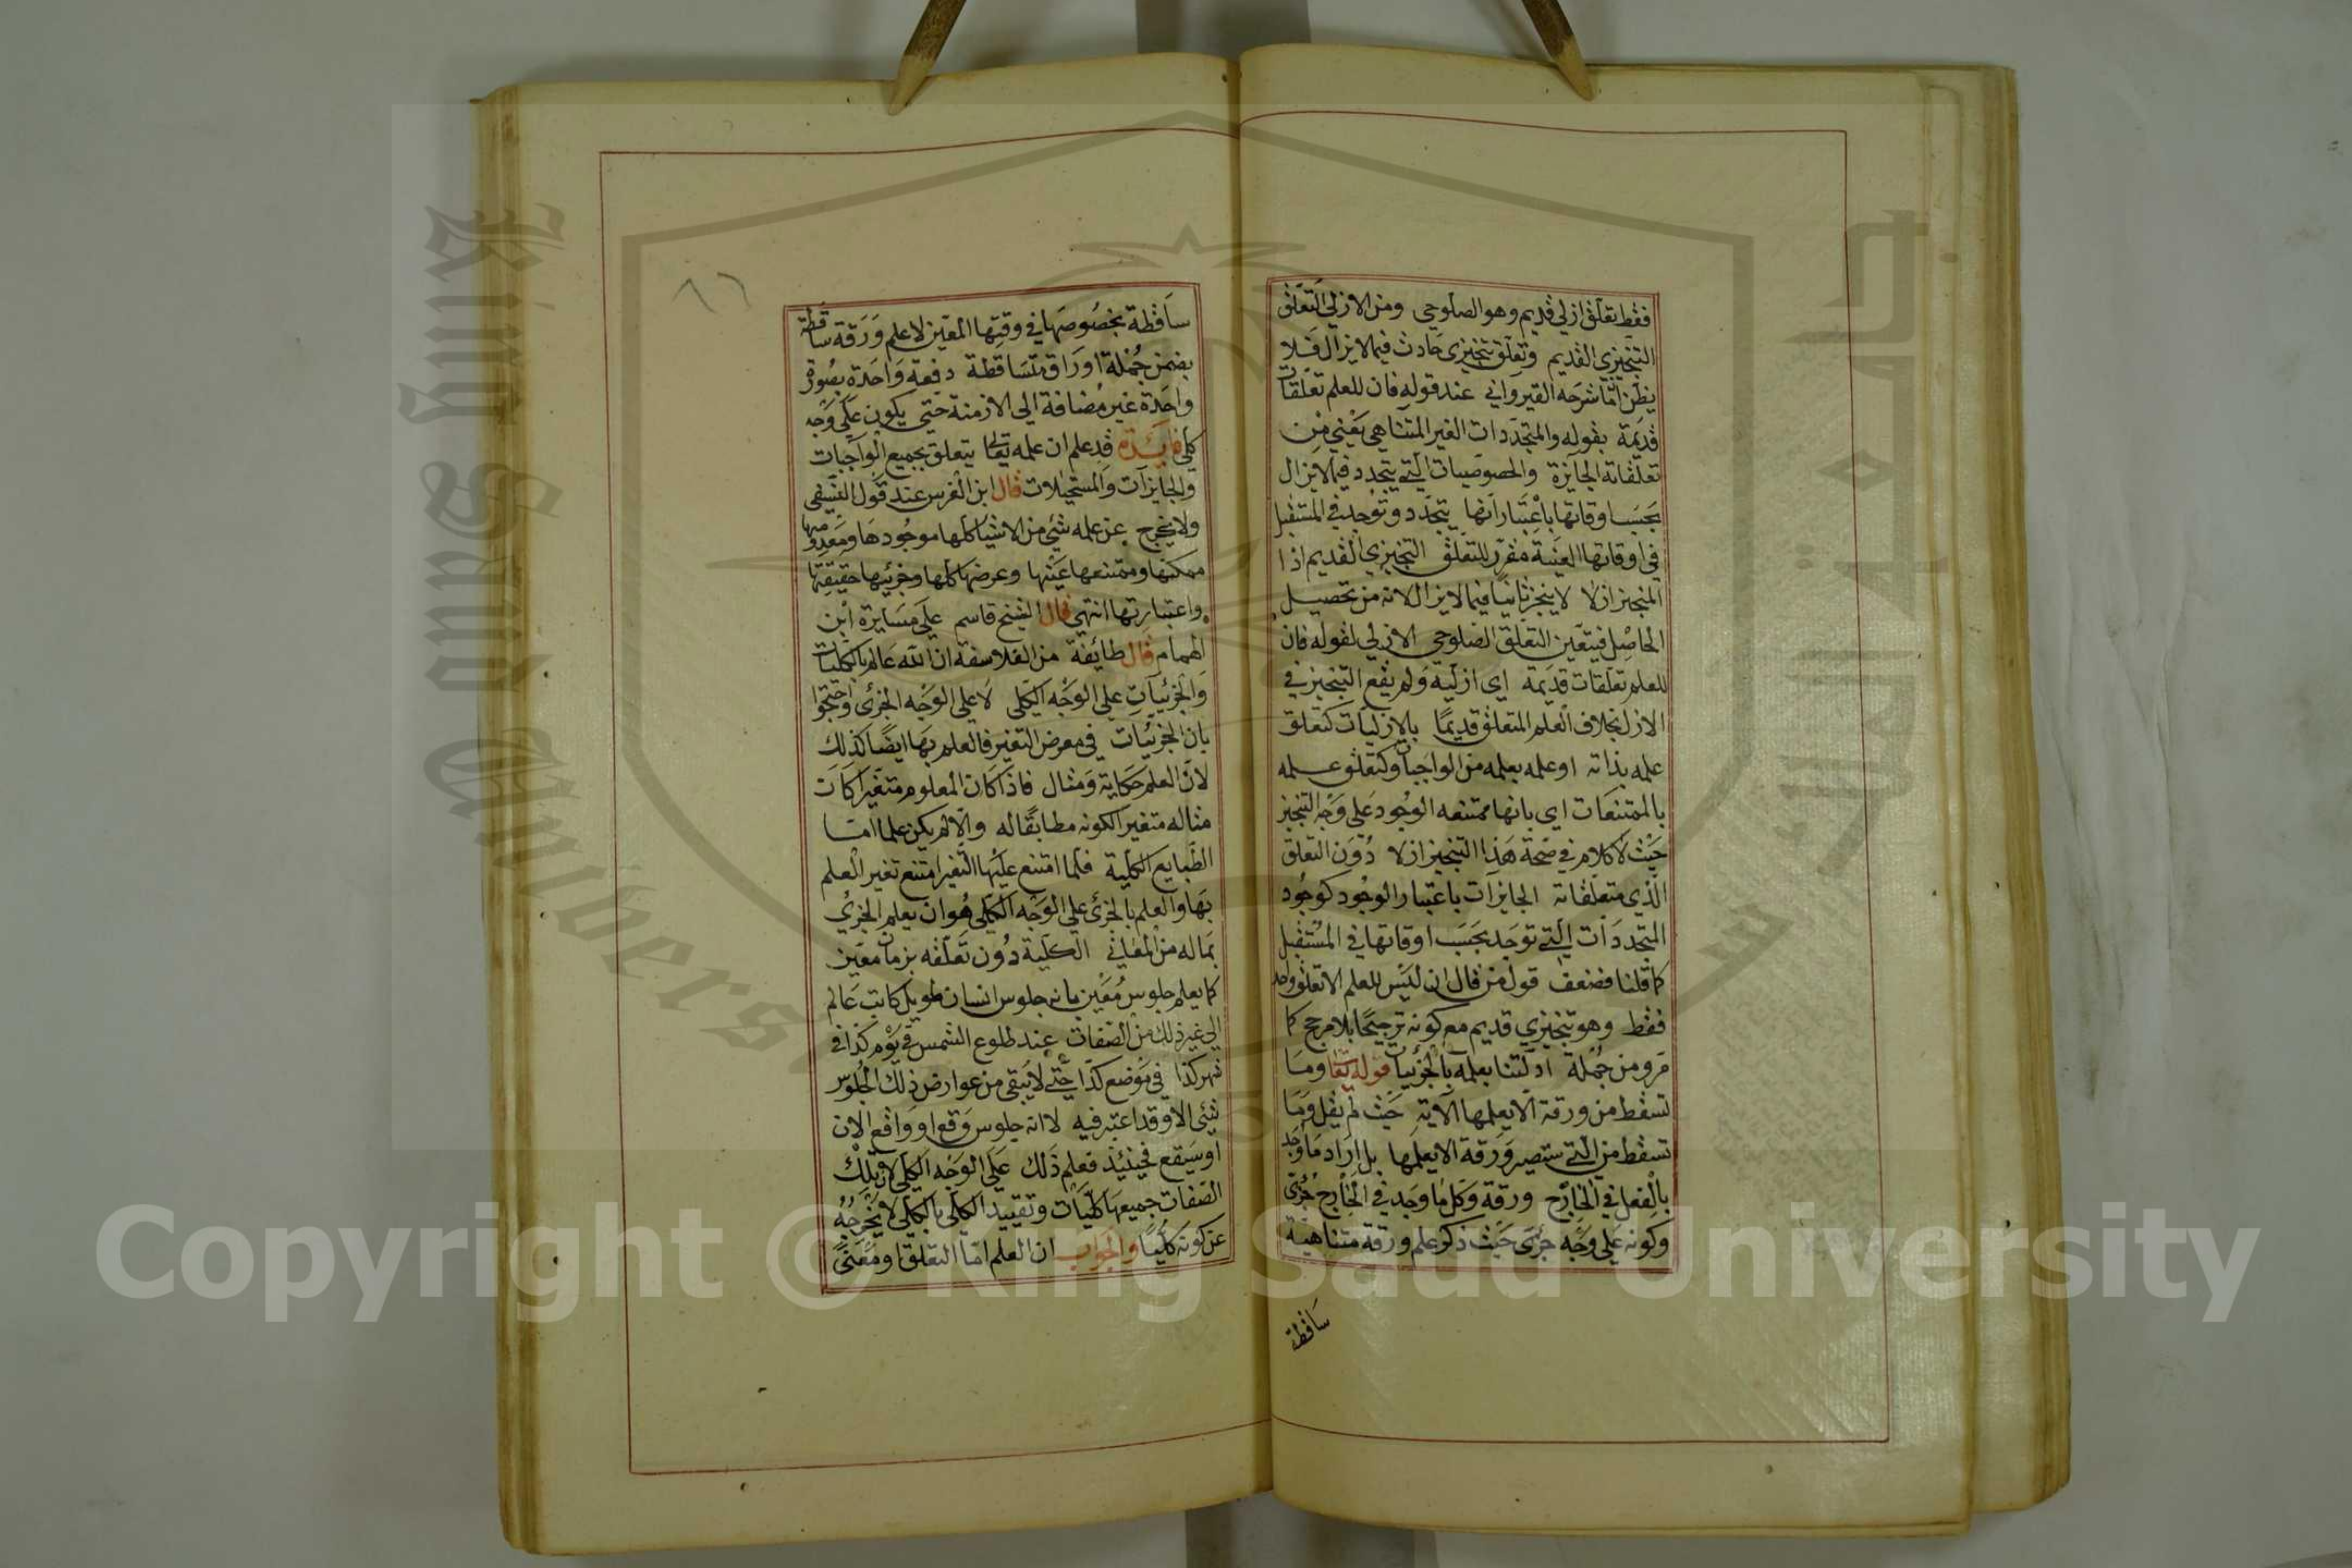 فقط تعلق ازلي قديم وهو الصلوحي ومن الازلي التعلق
التنجيزي القديم وتعلق تنجيزي حادث فيما لا يزال فلا
يظن انما شرحه القيرواني عند قوله فان للعلم تعلقات
قديمة بقوله والمتجددات الغير المتناهي يعني من
تعلقاته الجايزة والخصوصيات التي يتجدد فيما لا يزال
بحسب اوقاتها باعتبار انها يتجدد وتوجد في المستقبل
في اوقاتها المعينة مقرر للتعلق التنجيزي القديم اذا
المنجيز ازلا لا ينجز ثانيا فيما لا يزال لانه من تحصيل
الحاصل فيتعين التعلق الصلوحي الازلي لقوله فان
للعلم تعلقات قديمة اي ازلية ولم يقع التنجيز في
الازل بخلاف العلم المتعلق قديما بالازليات كتعلق
علمه بذاته او علمه بعلمه من الواجبات وكتعلق علمه
بالممتنعات اي بانها ممتنعه الوجود على وجه التنجيز
حيث لا كلام في صحة هذا التنجيز ازلا دون التعلق
الذي متعلقاته الجايزات باعتبار الوجود كوجود
المتجددات التي توجد بحسب اوقاتها في المستقبل
كما قلنا فضعف قول من قال ان ليس للعلم الا تعلق واحد
فقط وهو تنجيزي قديم مع كونه ترجيحا بلا مرجح كما
مر ومن جملة ادلتنا بعلمه بالجزئيات قوله تعا وما
تسقط من ورقة الا يعلمها الاية حيث لم يقل وما
تسقط من التي ستصير ورقة الا يعلمها بل اراد ما وجد
بالفعل في الخارج ورقة وكل ما وجد في الخارج جزئي
وكونه على وجه جزئى حيث ذكر علم ورقة متناهية
ساقطة
٨٦
ساقطة بخصوصها في وقتها المعين لا علم ورقة ساقطة
بضمن جملة اوراق متساقطة دفعة واحدة بصورة
واحدة غير مضافة الي الازمنة حتي يكون علي وجه
كلي فايدة قد علم ان علمه تعالى يتعلق بجميع الواجبات
والجايزات والمستحيلات قال ابن الغرس عند قول النسفي
ولا يخرج عن علمه شيئ من الاشيا كلها موجودها ومعدومها
ممكنها وممتنعها عينها وعرضها كلها وجزئيها حقيقتها
واعتباريتها انتهي قال الشيخ قاسم علي مسايرة ابن
الهمام قال طائفة من الفلاسفة ان الله عالم بالكليات
والجزئيات علي الوجه الكلي لا علي الوجه الجزئى واحتجوا
بان الجزئيات في معرض التغير فالعلم بها ايضا كذلك
لان العلم حكاية ومثال فاذا كان المعلوم متغيرا كان
مثاله متغيرا لكونه مطابقا له والا لم يكن علما اما
الطبايع الكلية فلما امتنع عليها التغير امتنع تغير العلم
بها والعلم بالجزئ علي الوجه الكلي هو ان يعلم الجزئ
بماله من المعاني الكلية دون تعلقه بزمان معين
كما يعلم جلوس معين بانه جلوس انسان طويل كاتب عالم
الي غير ذلك من الصفات عند طلوع الشمس في يوم كذا في
شهر كذا في موضع كذا حتي لا يبقى من عوارض ذلك الجلوس
شيئ الا وقد اعتبر فيه لا انه جلوس وقع او واقع الان
او سيقع فحينئذ فعلم ذلك على الوجه الكلي لان تلك
الصفات جميعها كليات وتقييد الكلي بالكلي لا يخرجه
عن كونه كليا والجواب ان العلم اما التعلق او معنى
Copyright © King Saud University
King Saud University